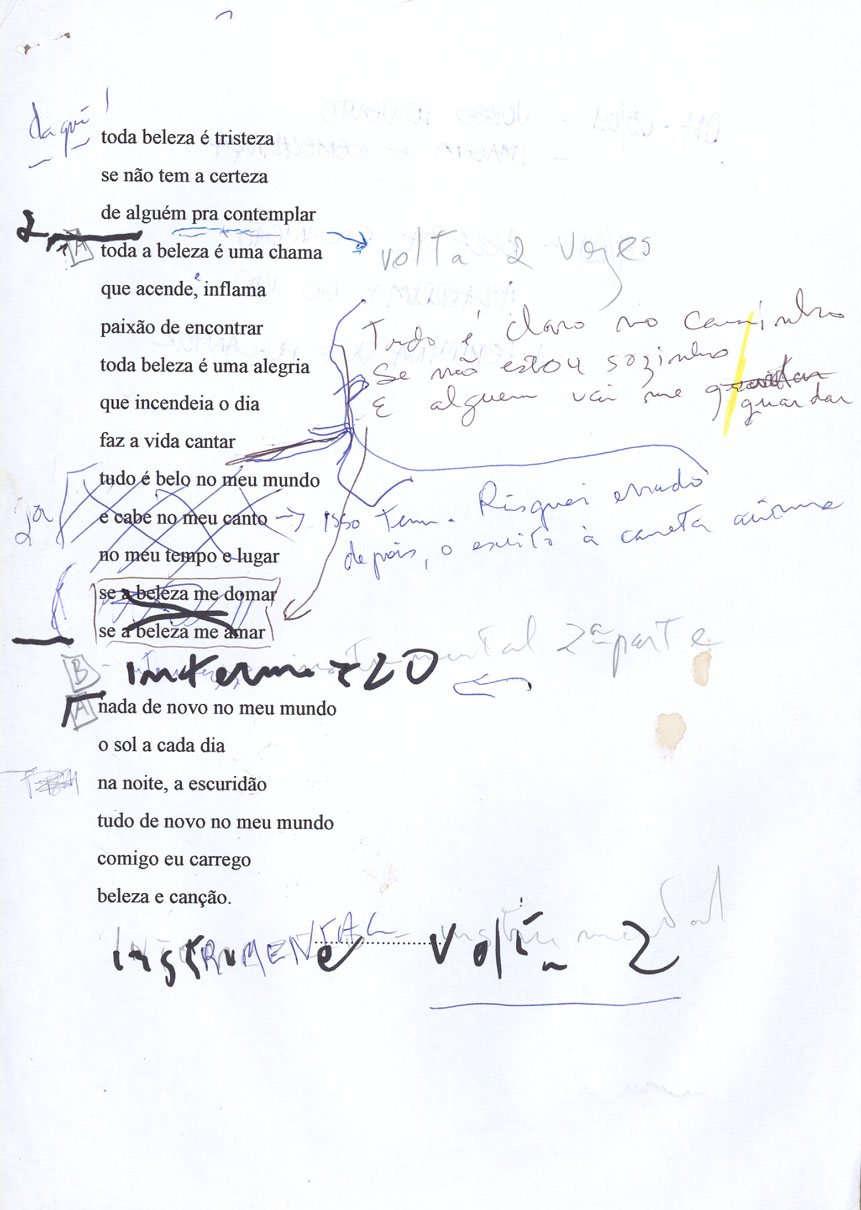 daqui!
toda beleza é tristeza
se não tem a certeza
de alguém pra contemplar
2
A toda a beleza é uma chama
volta 2 vezes
que acende, inflama
Tudo é claro no caminho
paixão de encontrar
Se não estou sozinho
toda beleza é uma alegria
E alguem vai me guardar
que incendeia o dia
faz a vida cantar
tudo é belo no meu mundo
e cabe no meu canto → isso tem. Risquei errado
no meu tempo e lugar
depois, o escrito à caneta
se a beleza me domar
se a beleza me amar
instrumental 2ª parte
B - intermezzo
A nada de novo no meu mundo
o sol a cada dia
na noite, a escuridão
tudo de novo no meu mundo
comigo eu carrego
beleza e canção.
INSTRUMENTAL instrumental
e volta 2